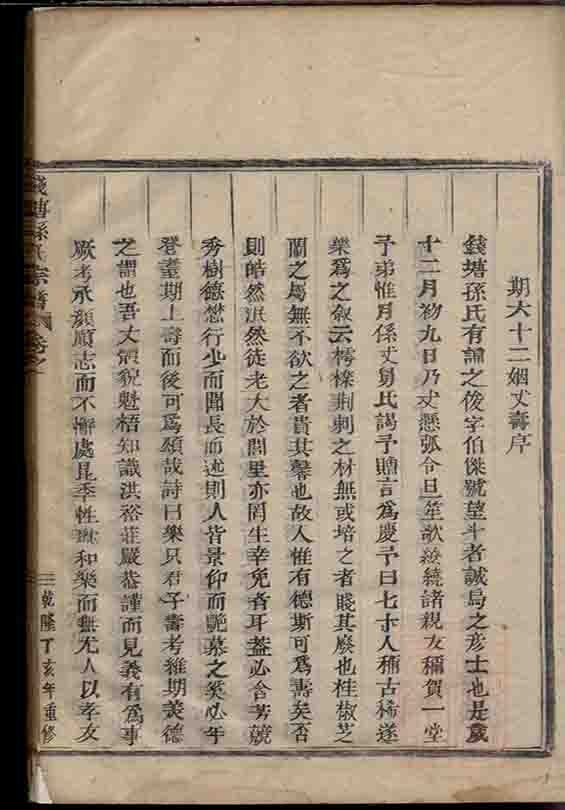 期六十二姻丈壽序
錢塘孫氏有諭之俊字伯傑號望斗者誠烏之彥士也是歲
十二月初九日乃丈懸弧令旦笙歌繞諸親友稱賀一堂
予弟惟月係丈舅氏謁予贈言為慶予曰七十人稱古稀遂
樂為之敘云樗櫟荆刺之材無或培之者賤其廢也桂椒芝
蘭之屬無不欲之者貴其馨也故人惟有德斯可為壽矣否
則皓然泯然徒老大於閭里亦罔生幸免者耳蓋必含芳競
秀樹德懋行少而聞長而述則人皆景仰而艷慕之矣必年
登耋期上壽而後可為願哉詩曰樂只君子壽考維期美德
之謂也吾丈體貌魁梧知識洪裕莊嚴恭謹而見義有為事
厥考承顏順志而不懈處昆季性和樂而無尤人以孝友
錢塘孫氏宗譜 卷之
乾隆丁亥年重修